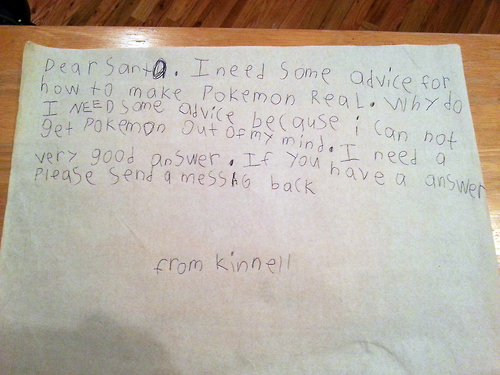 Dear Santa. I need some advice for
how to make Pokemon Real. Why do
I NEED some advice because i can not
get Pokemon out of my mind. I need a
very good answer. If you have a answer
Please send a messhg back
from kinnell